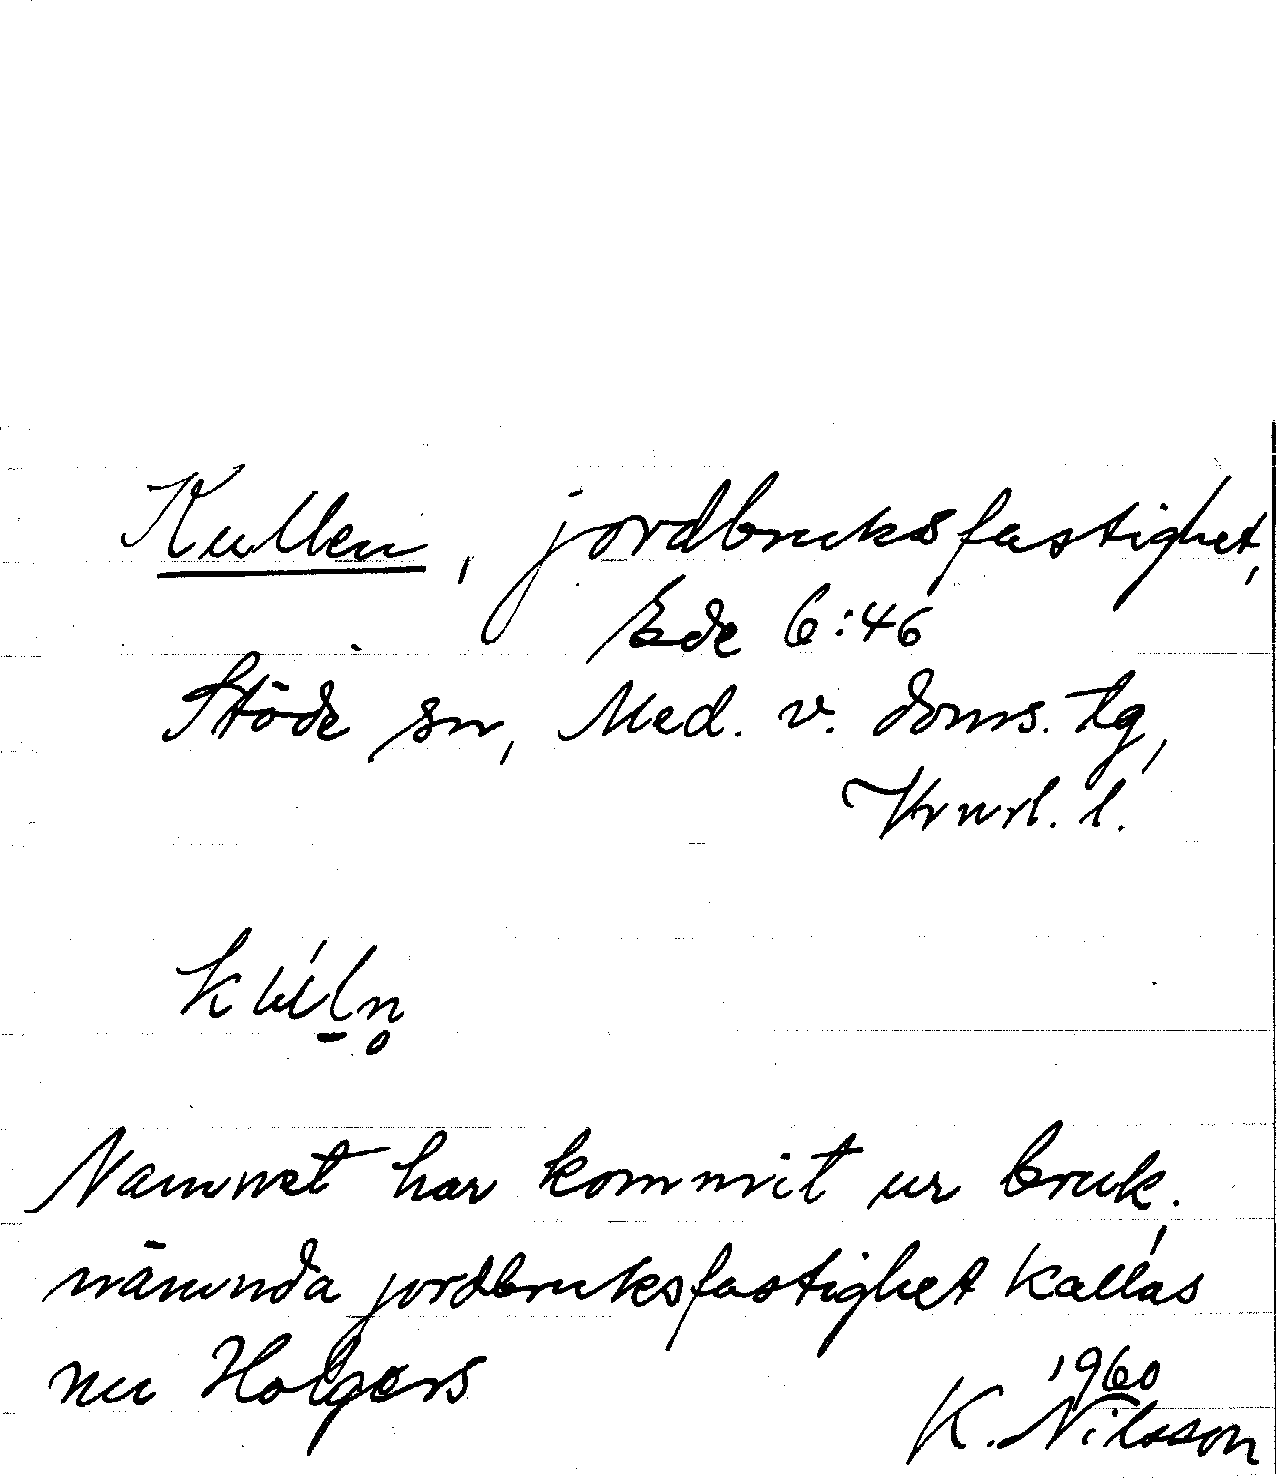 Kullen, jordbruksfastighet,
Ede 6:46
Stöde sn, Med. v. doms. tg,
Vrnrl. l.
kúl̠n̥
Namnet har kommit ur bruk.
nämnda jordbruksfastighet kallas
nu Holgers
1960
K. Nilsson